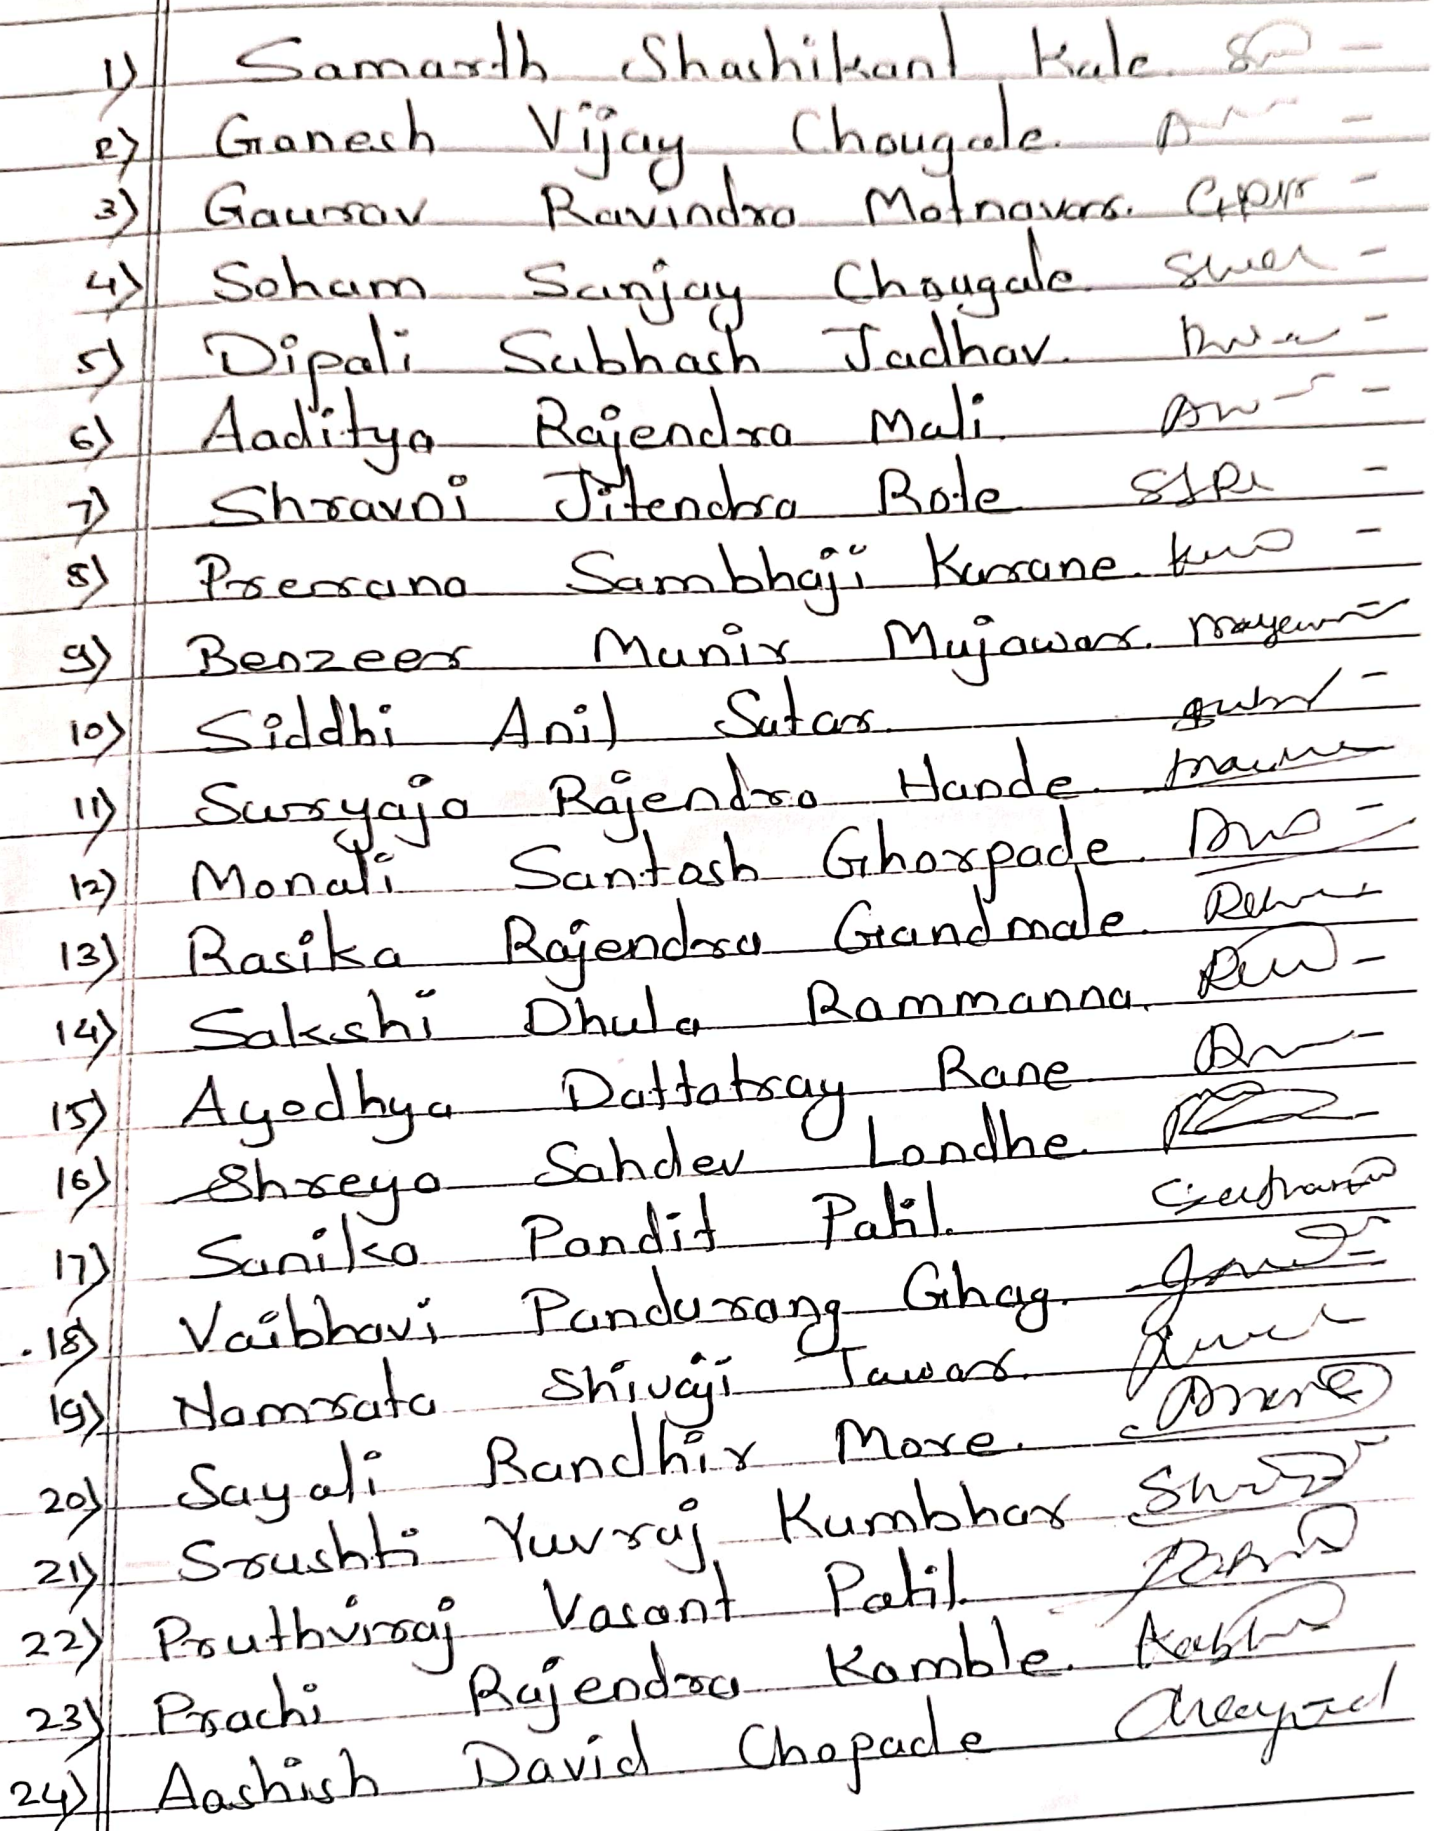 1) Samarth Shashikant Kale.
2) Ganesh Vijay Chougale.
3) Gaurav Ravindra Motnavar.
4) Soham Sanjay Chougale.
5) Dipali Subhash Jadhav.
6) Aaditya Rajendra Mali.
7) Shravni Jitendra Rote
8) Prerana Sambhaji Karane.
9) Benzeer Munir Mujawar.
10) Siddhi Anil Sutar.
11) Suryaja Rajendra Hande.
12) Monali Santosh Ghorpade.
13) Rasika Rajendra Gandmale.
14) Sakshi Dhula Rammanna.
15) Ayodhya Dattatray Rane
16) Shreya Sahdev Londhe.
17) Sanika Pandit Patil.
18) Vaibhavi Pandurang Ghag.
19) Namrata Shivaji Jawar.
20) Sayali Randhir More.
21) Srushti Yuvraj Kumbhar
22) Pruthviraj Vasant Patil.
23) Prachi Rajendra Kamble.
24) Aashish David Chopade